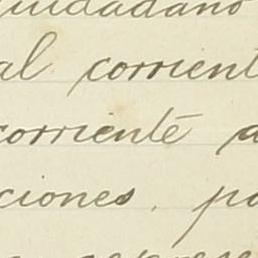 ciudadano
al corrient
corriente a
ciones, po